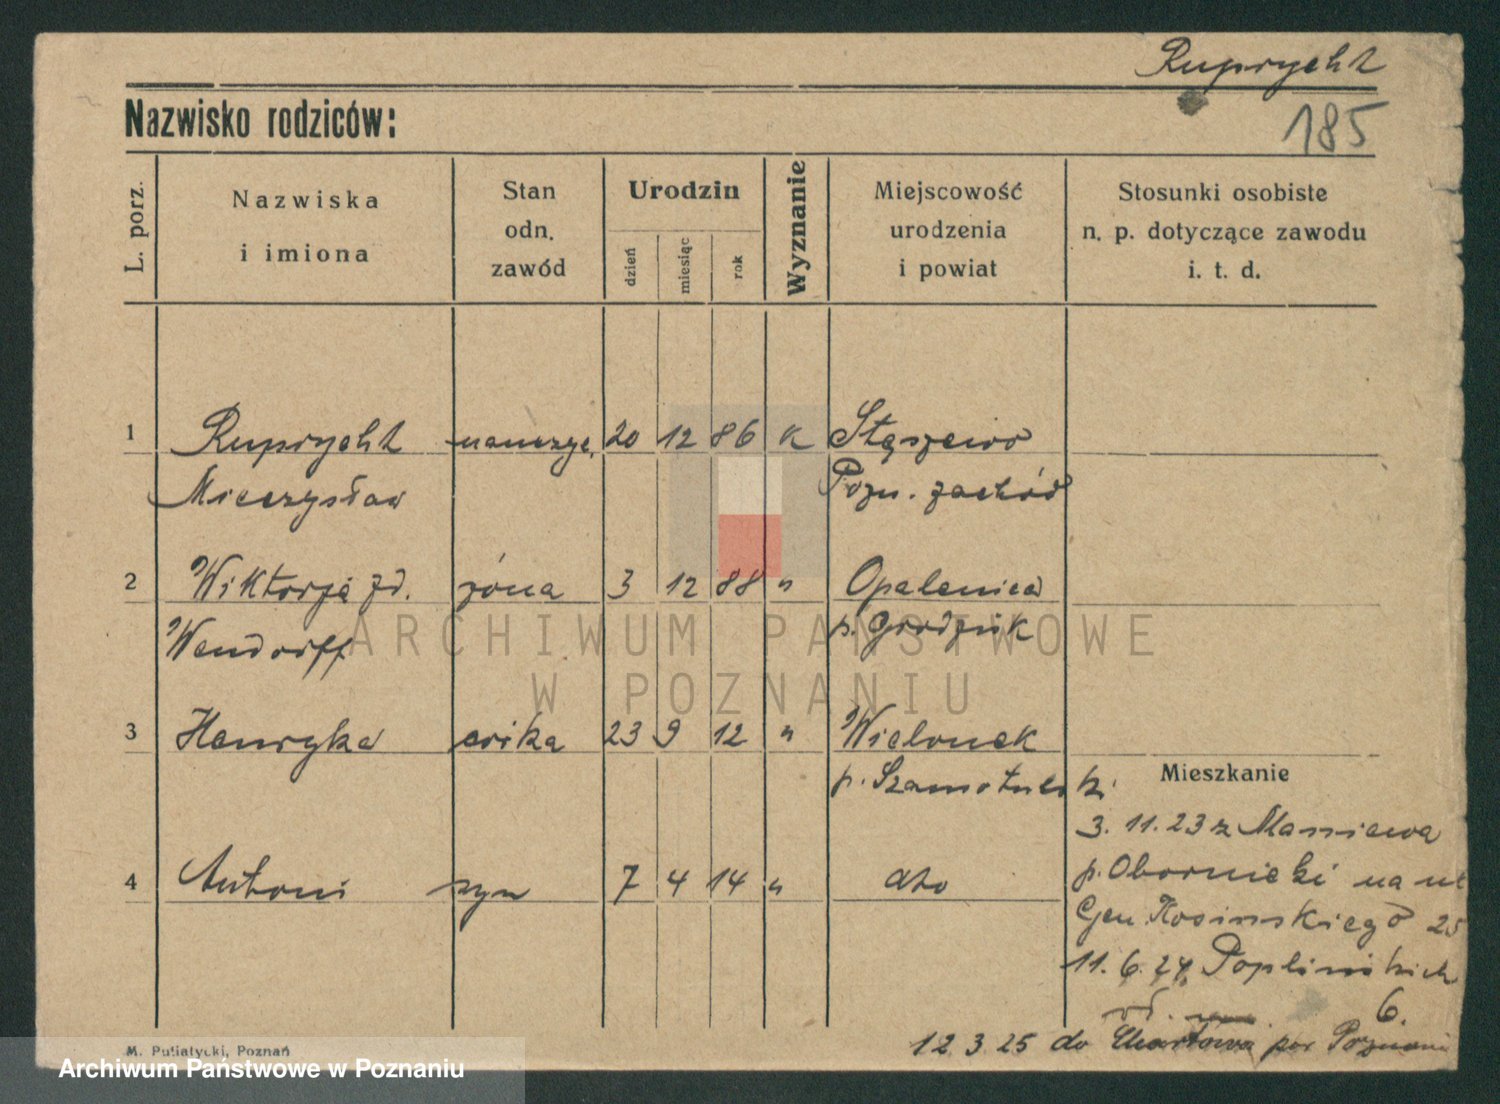 Ruprycht
185
Nazwisko rodziców:
L. porz.
Nazwiska
i imiona
Stan
odn.
zawód
Urodzin
dzień
miesiąc
rok
Wyznanie
Miejscowość
urodzenia
i powiat
Stosunki osobiste
n. p. dotyczące zawodu
i. t. d.
1 Ruprycht nauczyc. 20 12 86 k
Mieczysław Pozn. zachód
2 Wiktorja zd. żona 3 12 88 " Opalenica
Wendorff p. Grodzisk
3 Henryka córka 23 9 12 " Wielonek
p. Szamotulski
Mieszkanie
3. 11. 23 z
4 Antoni syn 7 4 14 " dto
p. Obornicki na ul
Gen Kosińskiego 25
11. 6. 24 Poplińskich
6.
12. 3. 25 do por Poznania
M. Putiatycki, Poznań
ARCHIWUM PAŃSTWOWE
W POZNANIU
Archiwum Państwowe w Poznaniu